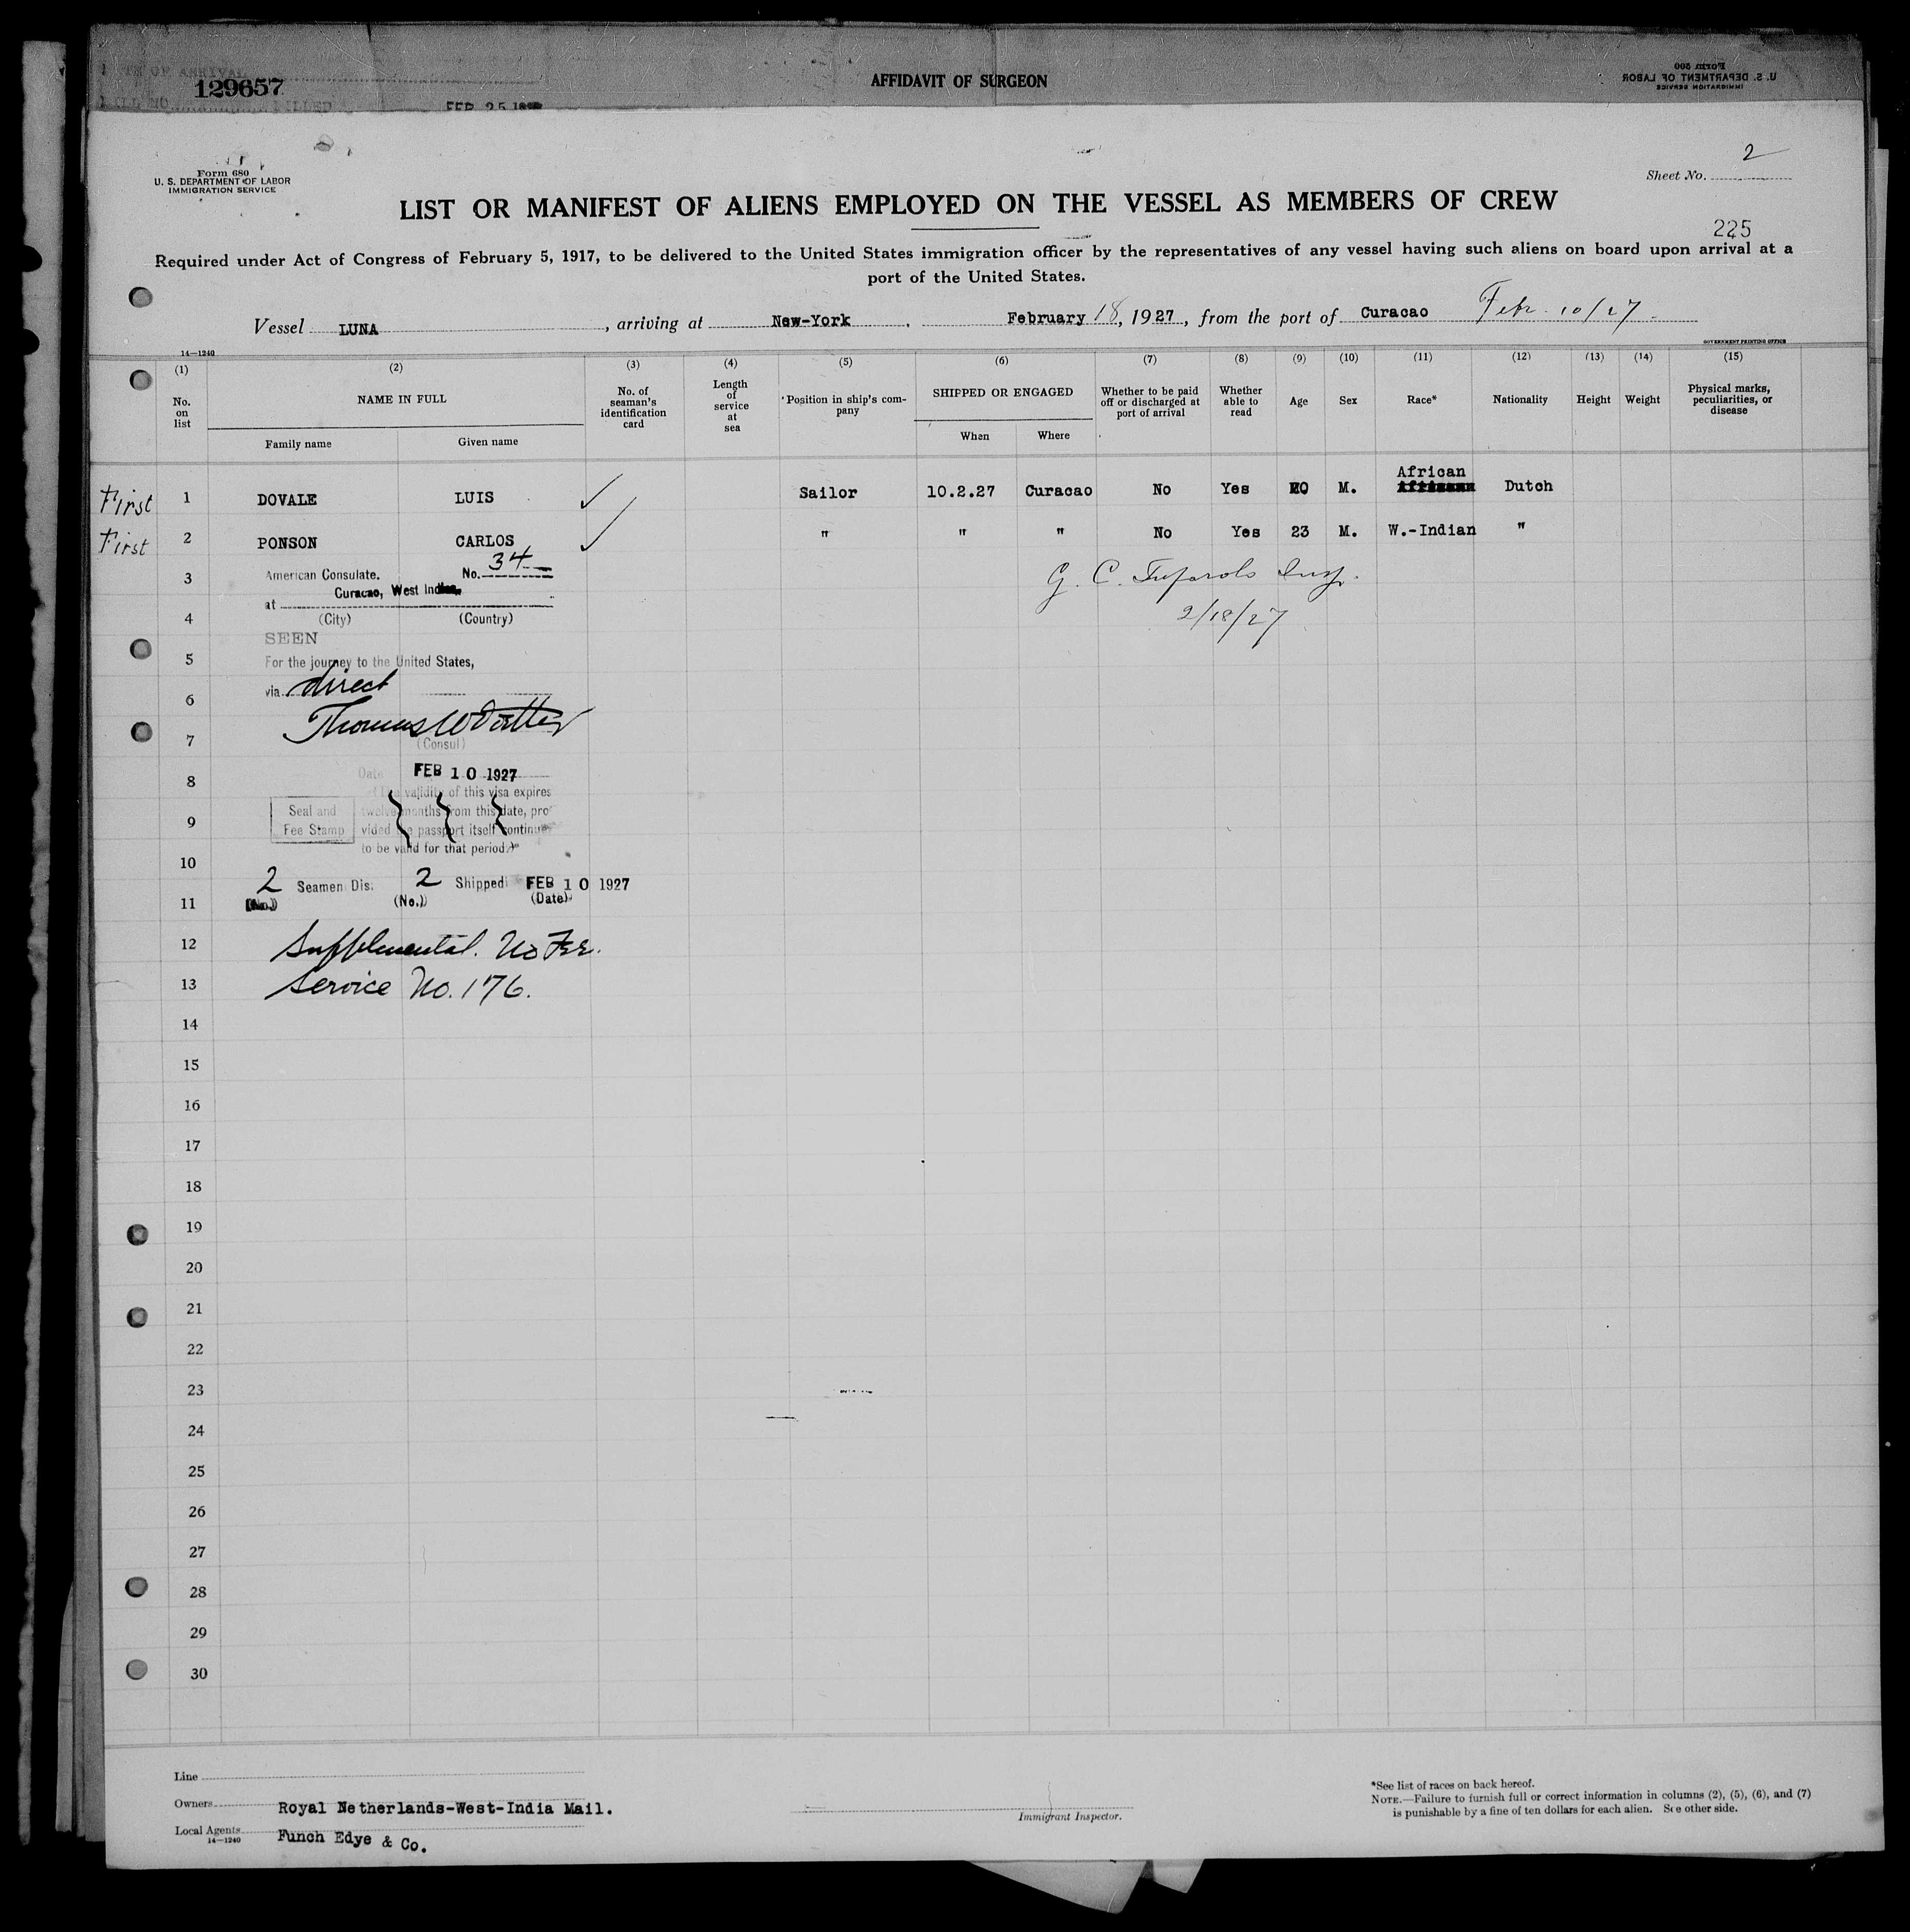 129657
AFFIDAVIT OF SURGEON
Form 500
U. S. DEPARTMENT OF LABOR
IMMIGRATION SERVICE
FEB 25
Form 680
U. S. DEPARTMENT OF LABOR
IMMIGRATION SERVICE
Sheet No. 2
LIST OR MANIFEST OF ALIENS EMPLOYED ON THE VESSEL AS MEMBERS OF CREW
225
Required under Act of Congress of February 5, 1917, to be delivered to the United States immigration officer by the representatives of any vessel having such aliens on board upon arrival at a
port of the United States.
Vessel LUNA, arriving at New-York, February 18, 1927, from the port of Curacao Febr. 10/27
14—1240
GOVERNMENT PRINTING OFFICE
(1) (2) (3) (4) (5) (6) (7) (8) (9) (10) (11) (12) (13) (14) (15)
No. on list
NAME IN FULL
Family name
Given name
No. of seaman's identification card
Length of service at sea
Position in ship's company
SHIPPED OR ENGAGED
When
Where
Whether to be paid off or discharged at port of arrival
Whether able to read
Age
Sex
Race*
Nationality
Height
Weight
Physical marks, peculiarities, or disease
African
First 1 DOVALE LUIS ✓ Sailor 10.2.27 Curacao No Yes 20 M. Dutch
First 2 PONSON CARLOS ✓ " " " No Yes 23 M. W.-Indian "
3 American Consulate. No. 34
Curacao, West Indies
at
4 (City) (Country)
SEEN
5 For the journey to the United States,
via direct
6
7
(Consul)
8 Date FEB 10 1927
(The validity of this visa expires
Seal and twelve months from this date, pro
9 Fee Stamp vided the passport itself continues
to be valid for that period.)
10
2 Seamen Dis. 2 Shipped FEB 10 1927
11 (No.) (No.) (Date)
12 Supplemental. No Fee.
13 Service No. 176.
G. C. Insp.
2/18/27
14
15
16
17
18
19
20
21
22
23
24
25
26
27
28
29
30
Line
Owners Royal Netherlands-West-India Mail.
Local Agents Funch Edye & Co.
14—1240
Immigrant Inspector.
*See list of races on back hereof.
NOTE.—Failure to furnish full or correct information in columns (2), (5), (6), and (7)
is punishable by a fine of ten dollars for each alien. See other side.